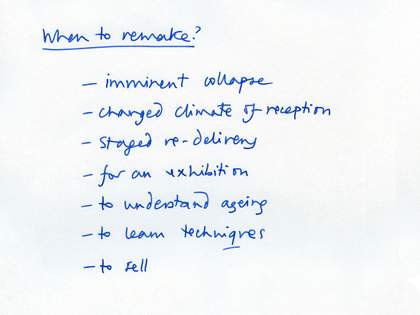 When to remake?
– imminent collapse
– changed climate of reception
– staged re-delivery
– for an exhibition
– to understand ageing
– to learn techniques
– to sell